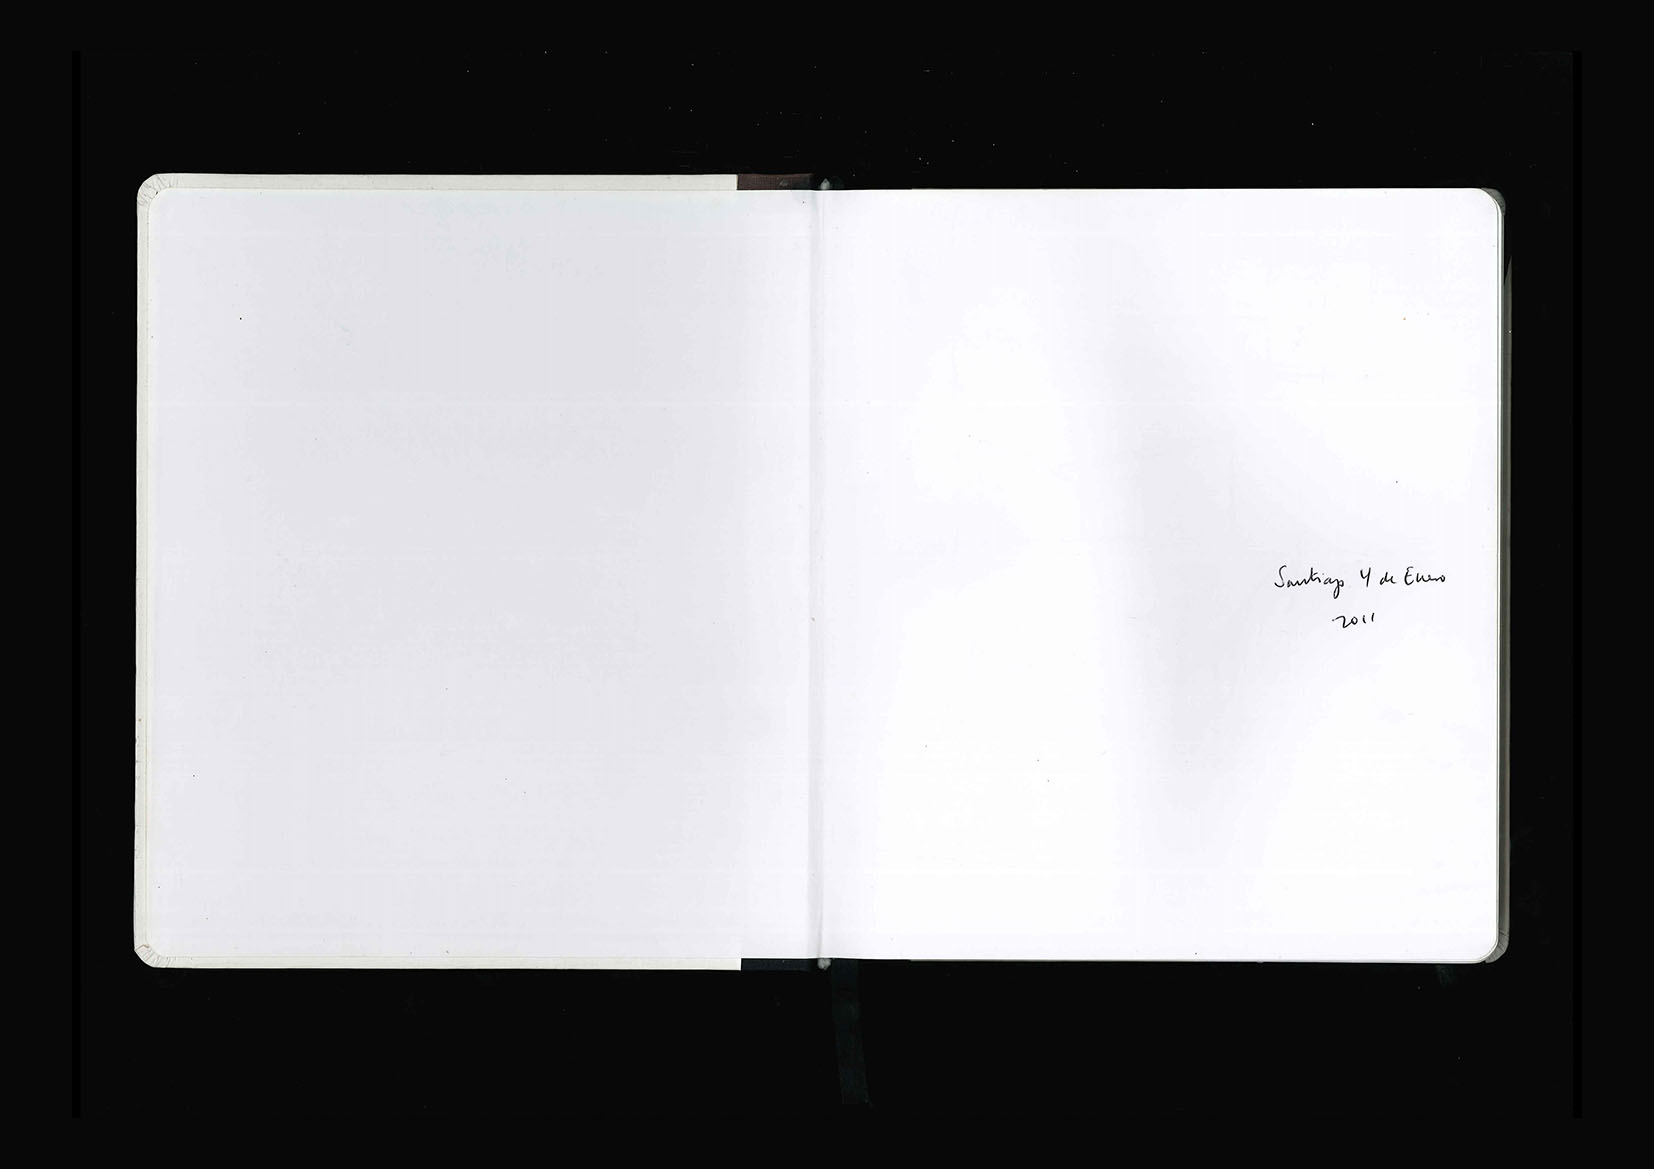 Santiago 4 de Enero
2011